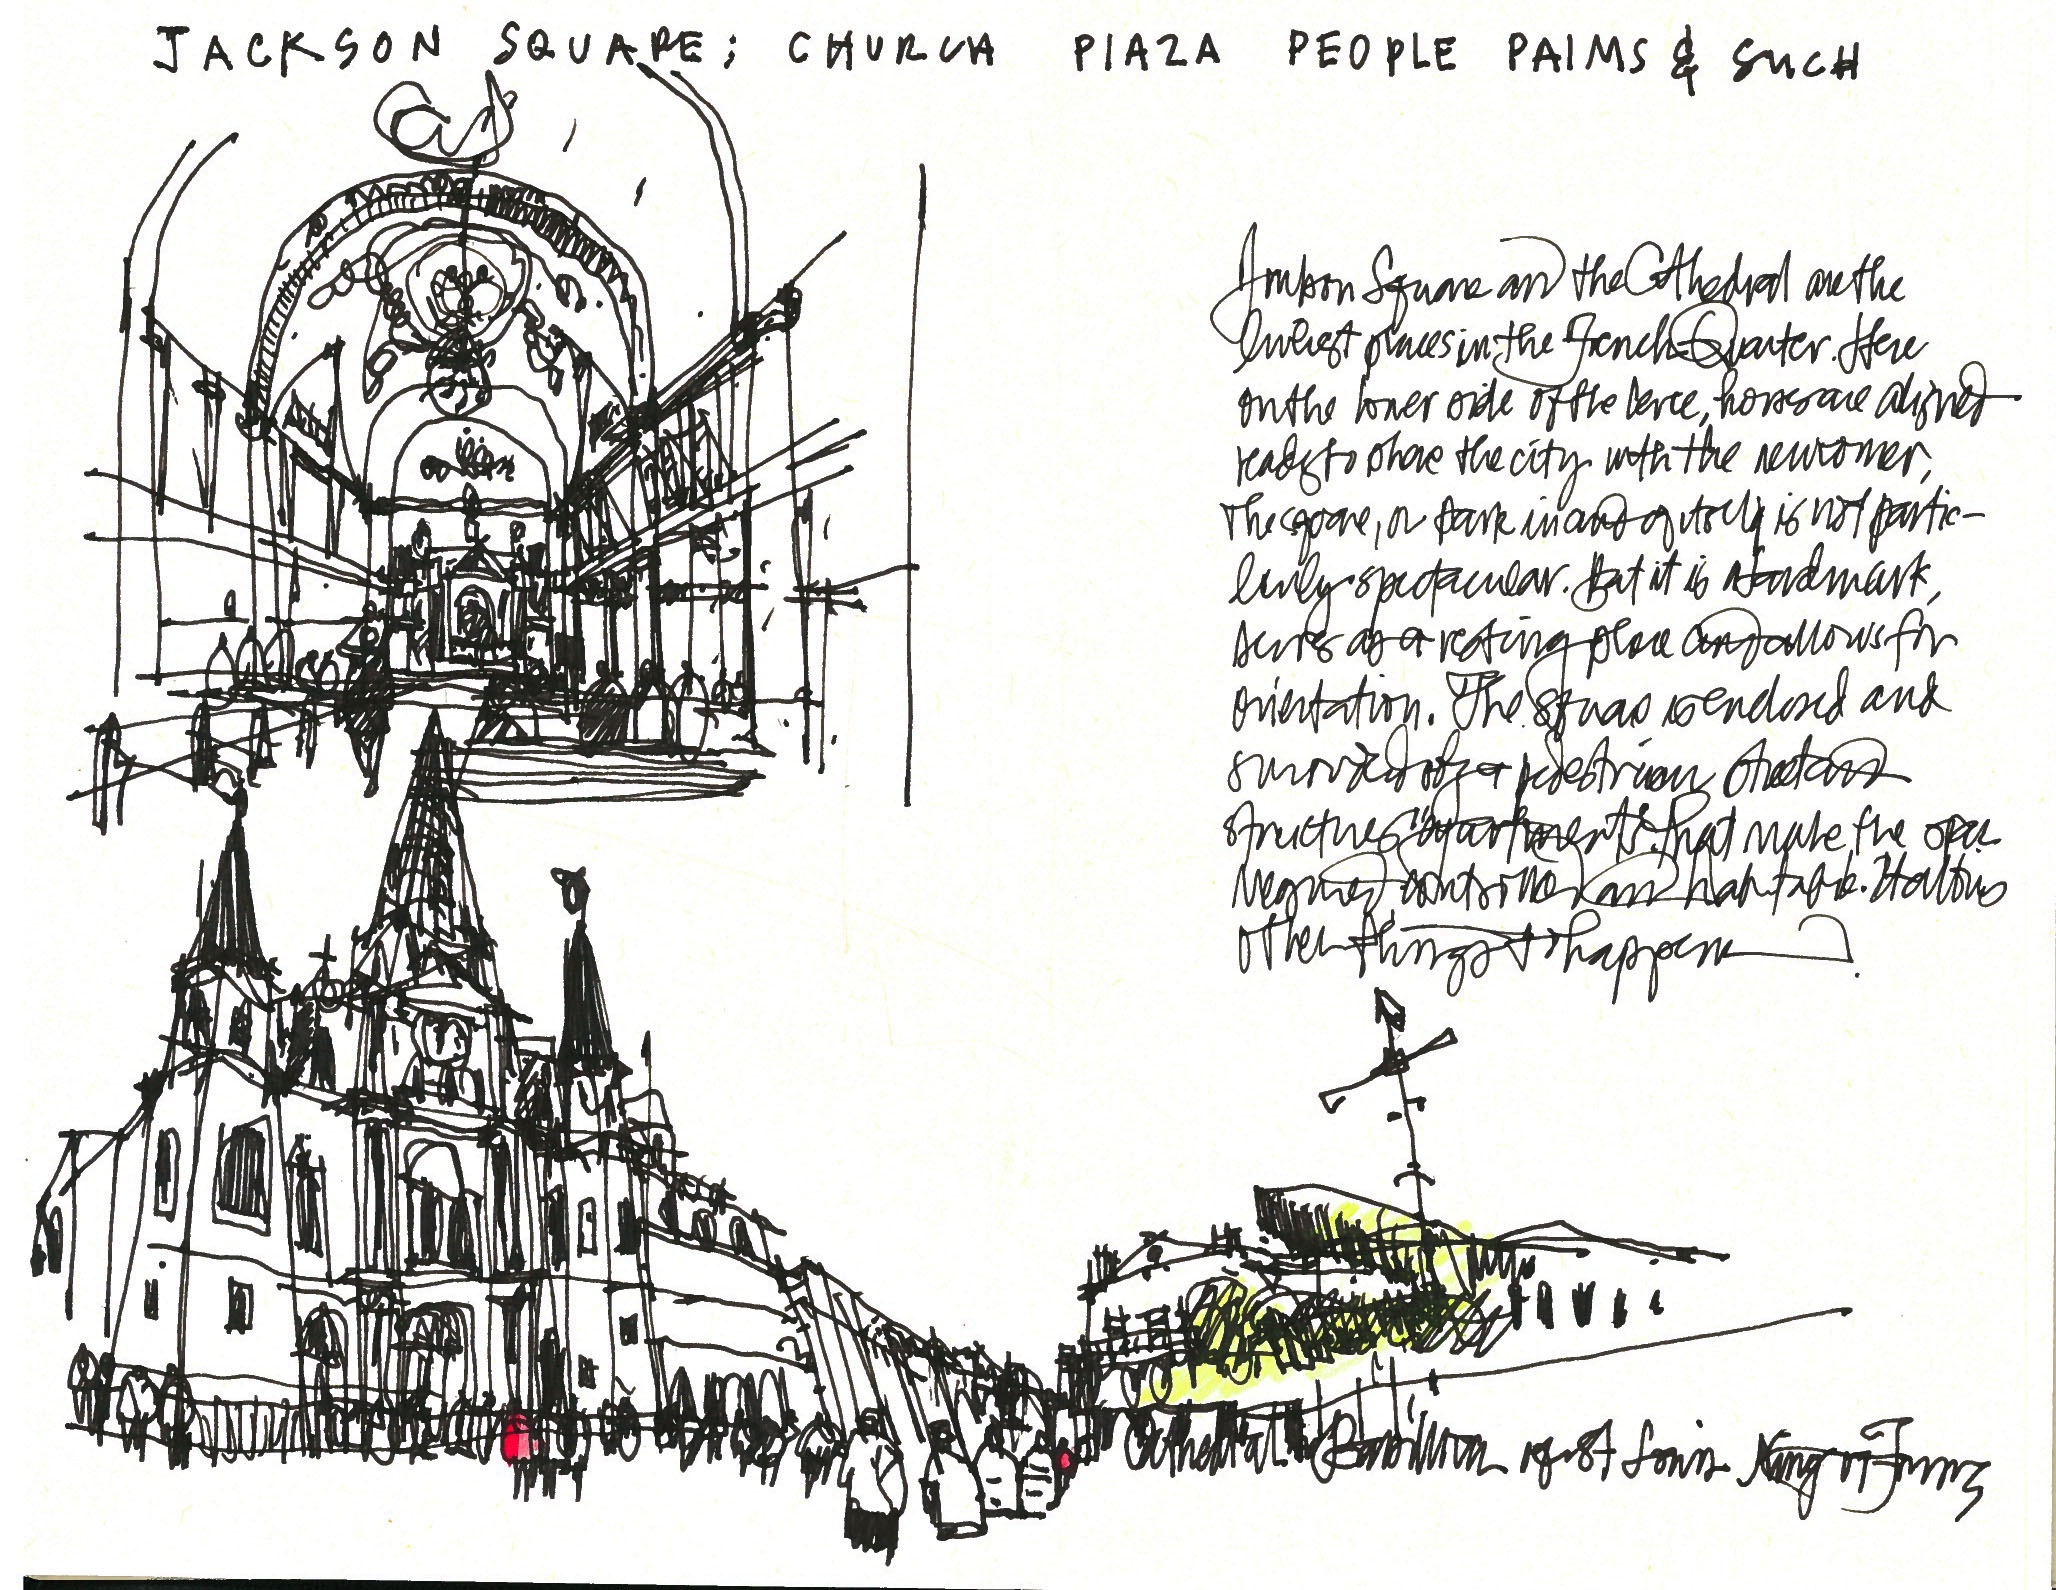 JACKSON SQUARE; CHURCH PIAZA PEOPLE PALMS & SUCH
Jackson Square and the Cathedral are the
liveliest places in the French Quarter. Here
on the lower side of the levee, horses are aligned
ready to share the city with the newcomer,
The square, or park in and of itself is not partic-
larly spectacular. But it is a landmark,
serves as a resting place and allows for
orientation. The square is enclosed and
surrounded by a pedestrian street and
structures "apartments" that make the space
contained and habitable. It allows
other things to happen
Cathedral Basilica of St Louis King of France